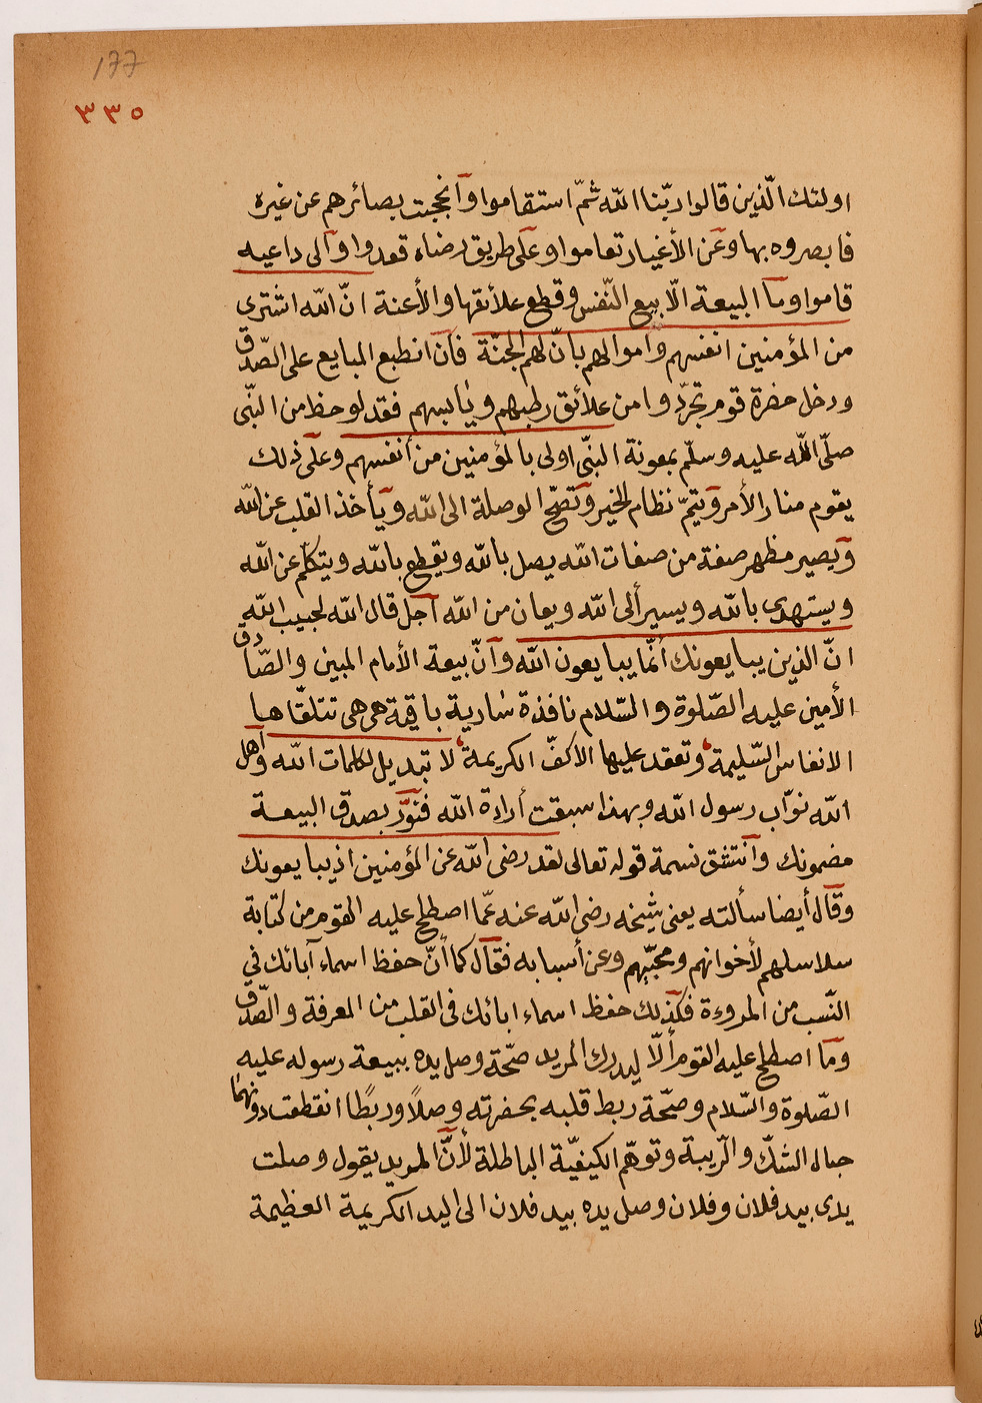 177
٣٣٥
اولئك الّذين قالوا ربّنا اللّه ثمّ استقاموا وانحجبت بصائرهم عن غيره
فابصروه بها وعن الأغيار تعاموا وعلى طريق رضاه قعدوا والى داعيه
قاموا وما البيعة الّا بيع النّفس وقطع علائقها والأعنة انّ اللّه اشترى
من المؤمنين انفسهم واموالهم بانّ لهم الجنّة فان انطبع المبايع على الصّدق
ودخل حضرة قوم تجرّدوا من علائق رطبهم ويابسهم فقد لوحظ من النبّى
صلّى اللّه عليه وسلّم بمعونة النبّى اولى بالمؤمنين من أنفسهم وعلى ذلك
يقوم منار الأمر ويتمّ نظام الخير وتصحّ الوصلة الى اللّه ويأخذ القلب عن اللّه
ويصير مظهر صفة من صفات اللّه يصل باللّه ويقطع باللّه ويتكلّم عن اللّه
ويستهدى باللّه ويسير ألى اللّه ويعان من اللّه اجل قال اللّه لحبيب اللّه
انّ الذين يبايعونك أنّما يبايعون اللّه وانّ بيعة الأمام المبين والصّادق
الأمين عليه الصّلوة والسّلام نافذة سارية باقية هى هى تتلقّاها
الانفاس السّليمة وتعقد عليها الاكفّ الكريمة لا تبديل لكلمات اللّه وأهل
اللّه نوّاب رسول اللّه وبهذا سبقت أرادة اللّه فنوّر بصدق البيعة
مضمونك وانتشق نسمة قوله تعالى لقد رضى اللّه عن المؤمنين اذ يبايعونك
وقال أيضا سألته يعنى شيخه رضى اللّه عنه عمّا اصطلح عليه القوم من كتابة
سلاسلهم لأخوانهم ومحبّيهم وعن أسبابه فقال كما أنّ حفظ اسماء آبائك في
النّسب من المروءة فكذلك حفظ اسماء ابائك فى القلب من المعرفة والصّدق
وما اصطلح عليه القوم ألّا ليدرك المريد صحّة وصل يده ببيعة رسوله عليه
الصّلوة والسّلام وصحّة ربط قلبه بحضرته وصلًا وربطًا انقطعت دونهما
حبال الشكّ والرّيبة وتوهّم الكيفيّة الباطلة لأنّ المريد يقول وصلت
يدى بيد فلان وفلان وصل يده بيد فلان الى اليد الكريمة العظيمة